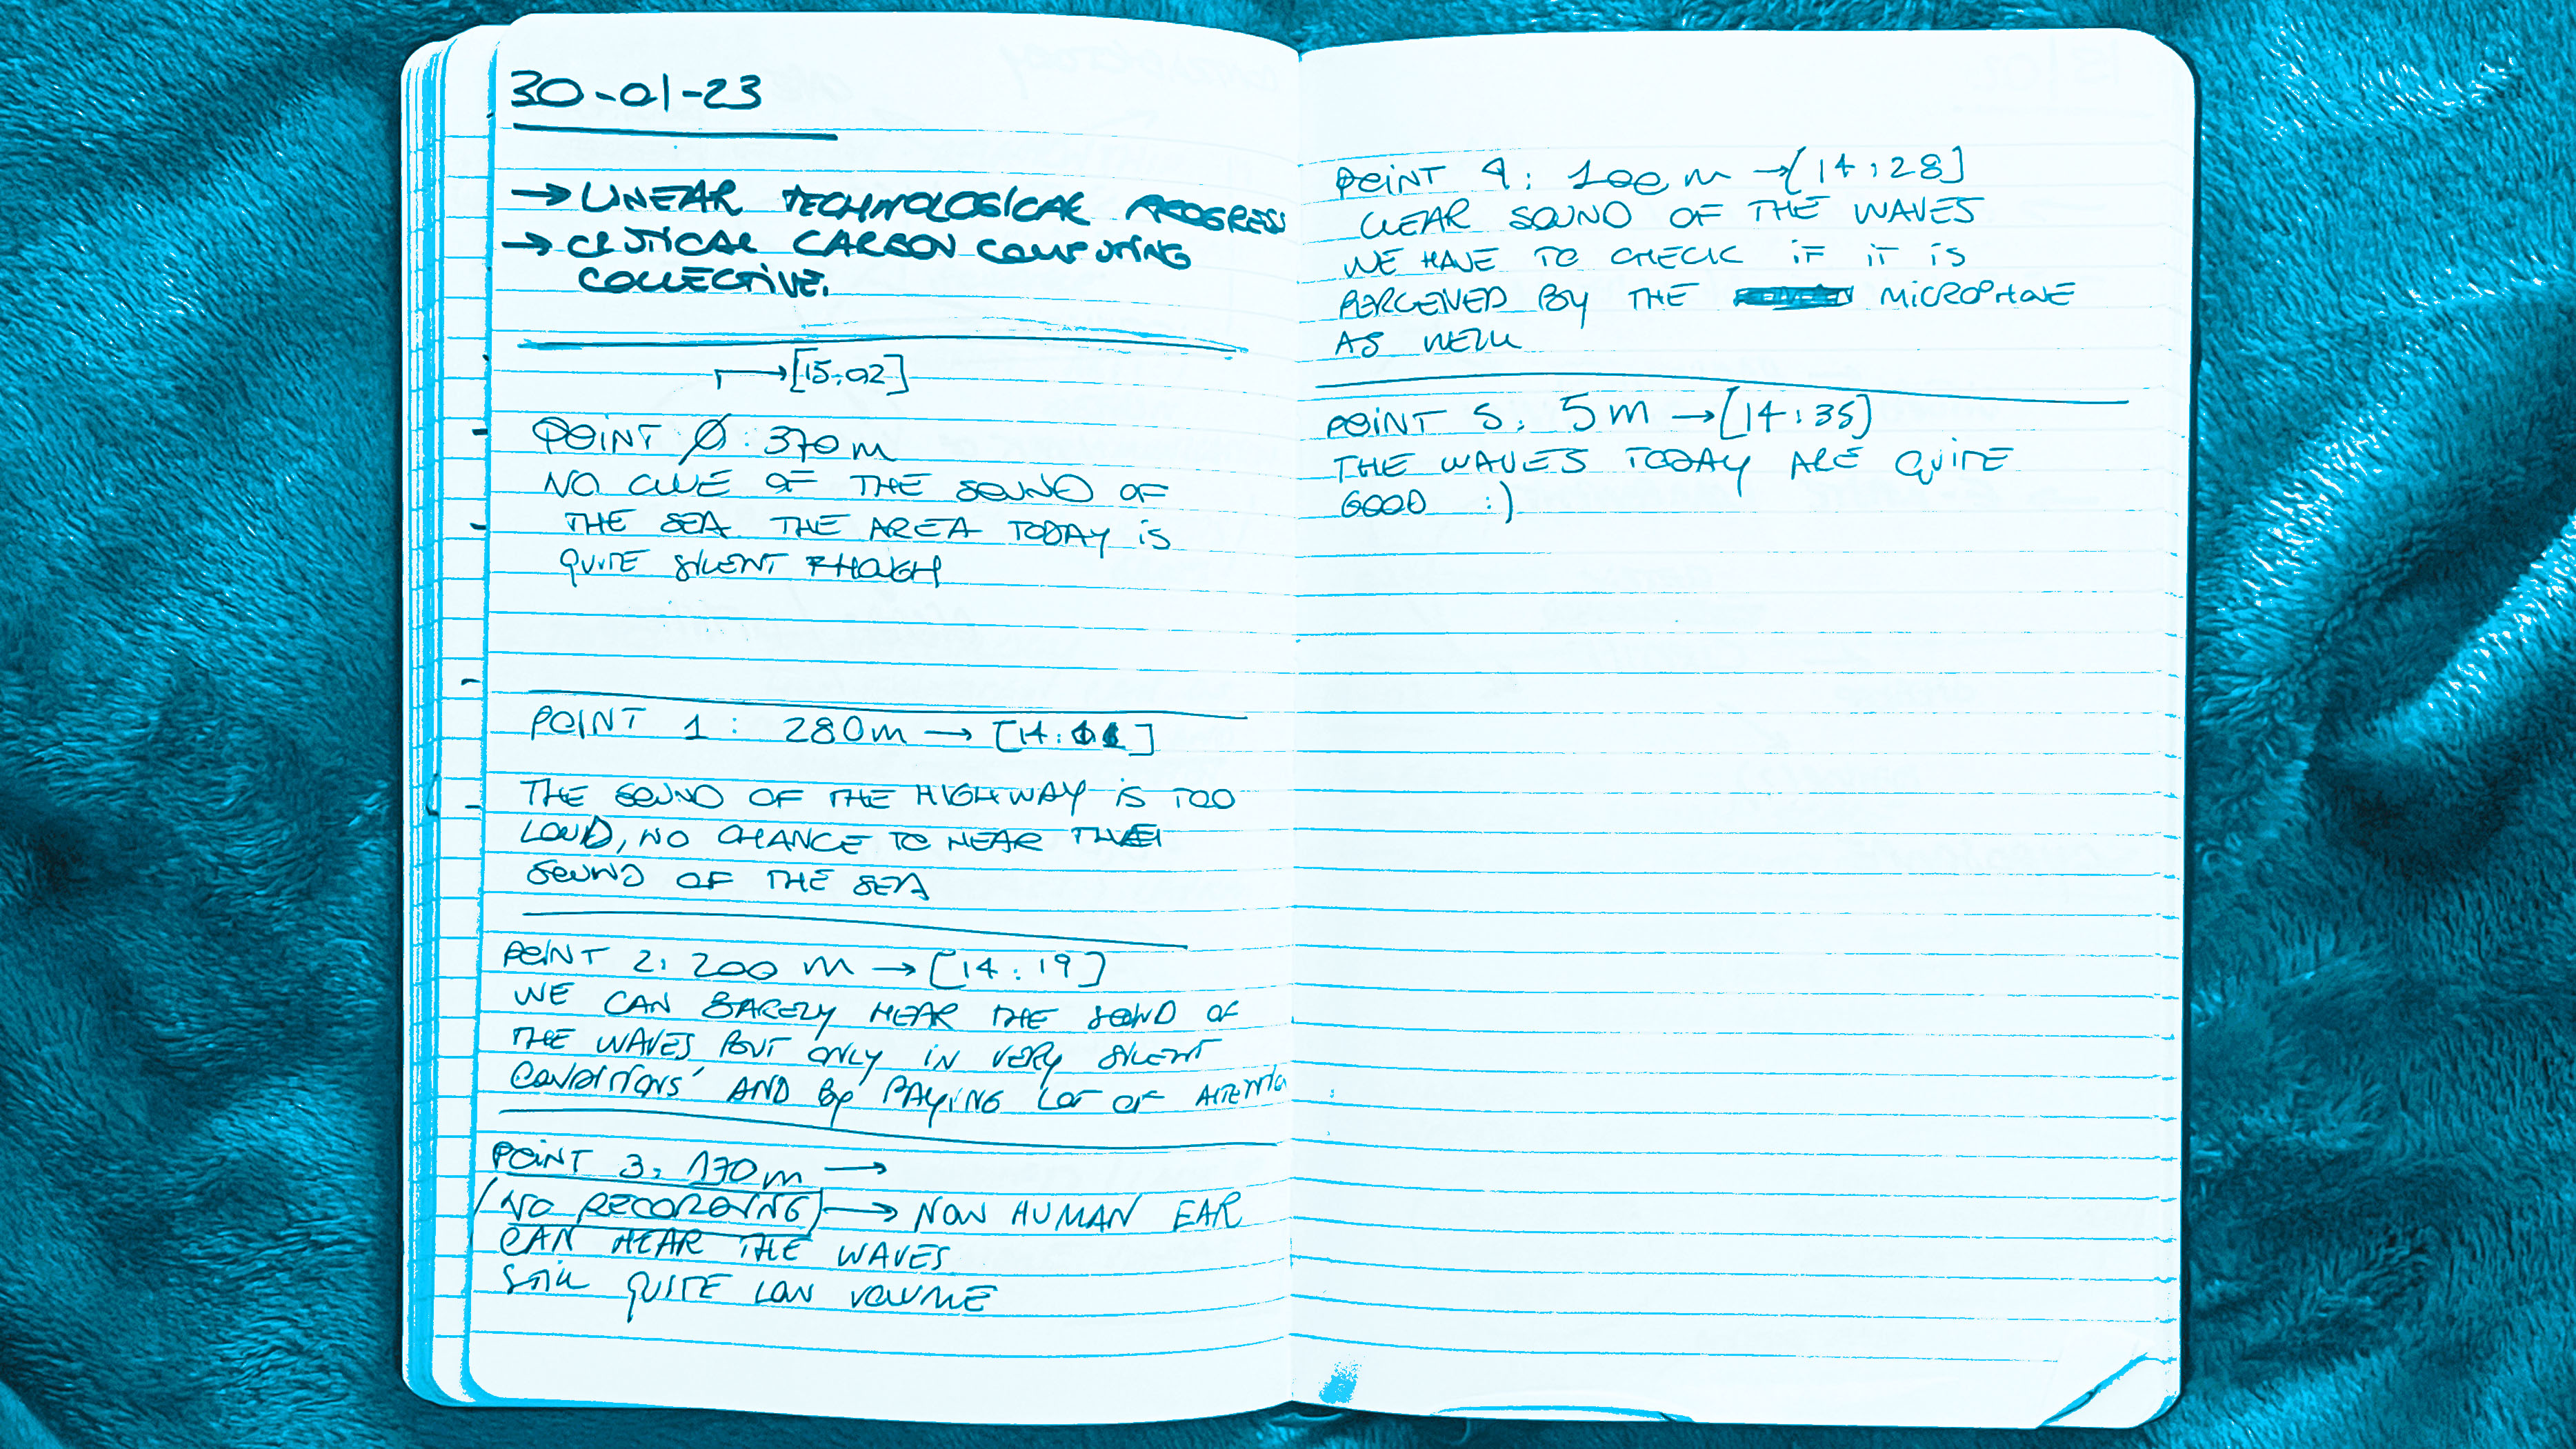 30-01-23
→ LINEAR TECHNOLOGICAL PROGRESS
→ CRITICAL CARBON COMPUTING
COLLECTIVE.
→ [15:02]
POINT Ø: 370m
NO CLUE OF THE SOUND OF
THE SEA THE AREA TODAY IS
QUITE SILENT THOUGH
POINT 1: 280m → [14:11]
THE SOUND OF THE HIGHWAY IS TOO
LOUD, NO CHANCE TO HEAR THE
SOUND OF THE SEA
POINT 2: 200 m → [14:19]
WE CAN BARELY HEAR THE SOUND OF
THE WAVES BUT ONLY IN VERY SILENT
CONDITIONS AND BY PAYING LOT OF ATTENTION
POINT 3: 170m →
(NO RECORDING) → NOW HUMAN EAR
CAN HEAR THE WAVES
STILL QUITE LOW VOLUME
POINT 4: 100 m → [14:28]
CLEAR SOUND OF THE WAVES
WE HAVE TO CHECK IF IT IS
PERCEIVED BY THE MICROPHONE
AS WELL
POINT 5: 5m → [14:35]
THE WAVES TODAY ARE QUITE
GOOD :)